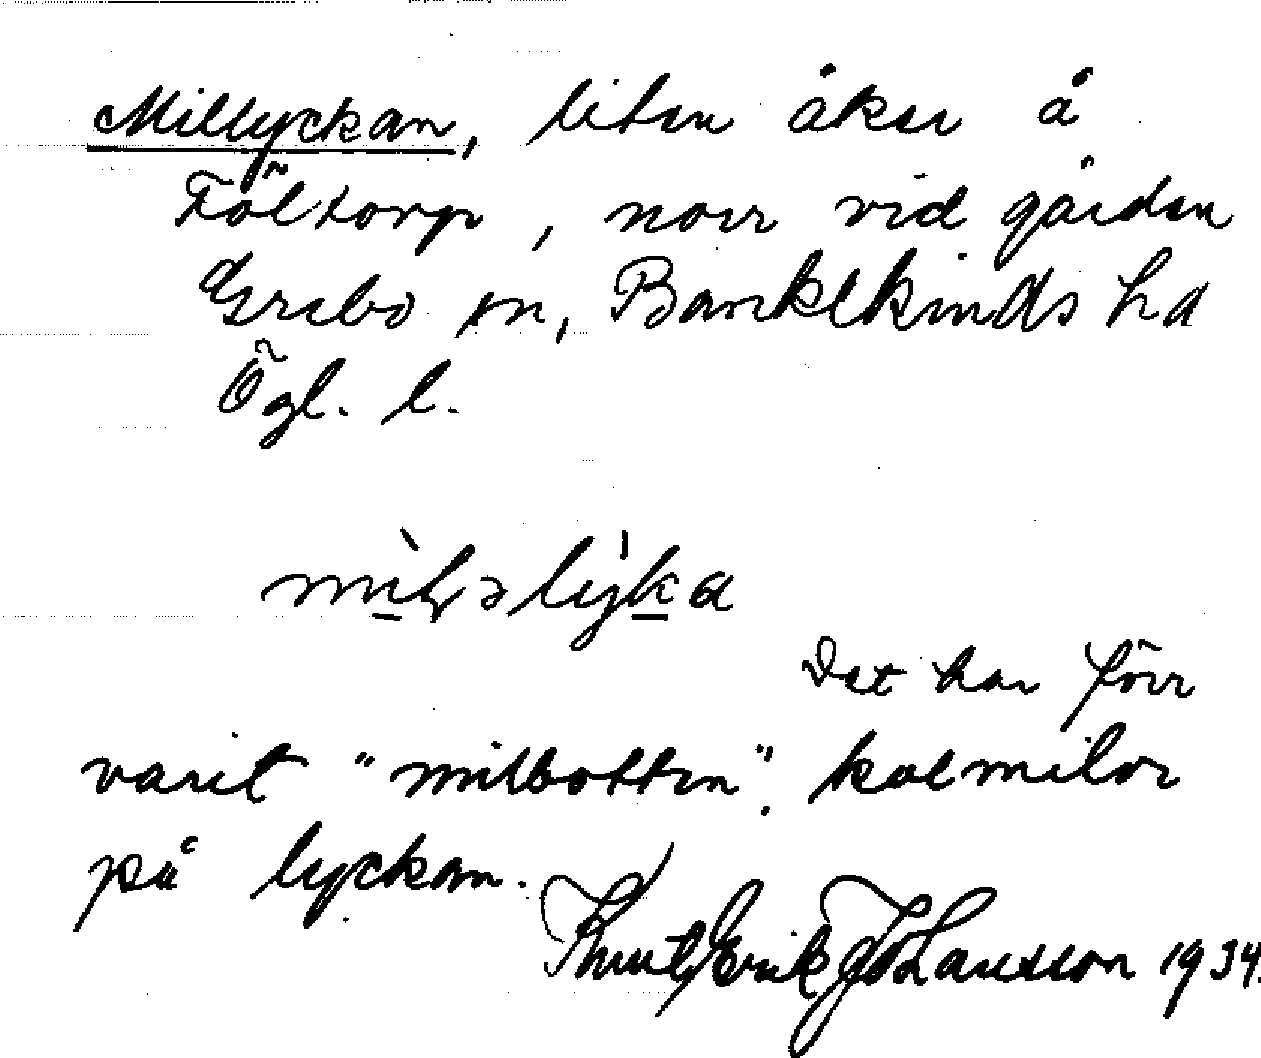 Millyckan, liten åker å
Föltorp, norr vid gården
Grebo sn, Bankekinds hd
Ögl. l.
Det har förr
varit "milbotten". kolmilor
på lyckan.
Knut Erik Johansson 1934.